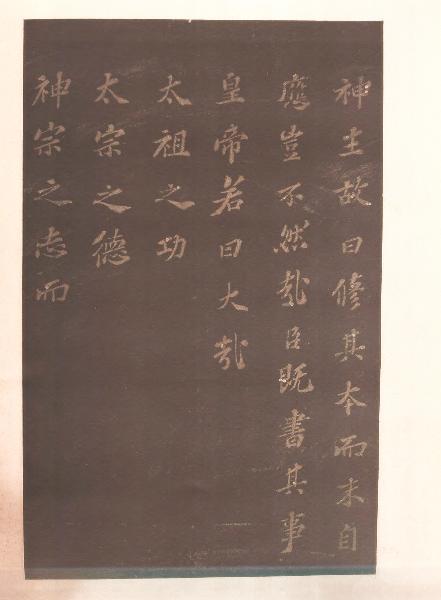 神主故曰脩其本而末自
應豈不然哉臣既書其事
皇帝若曰大哉
太祖之功
太宗之德
神宗之志而